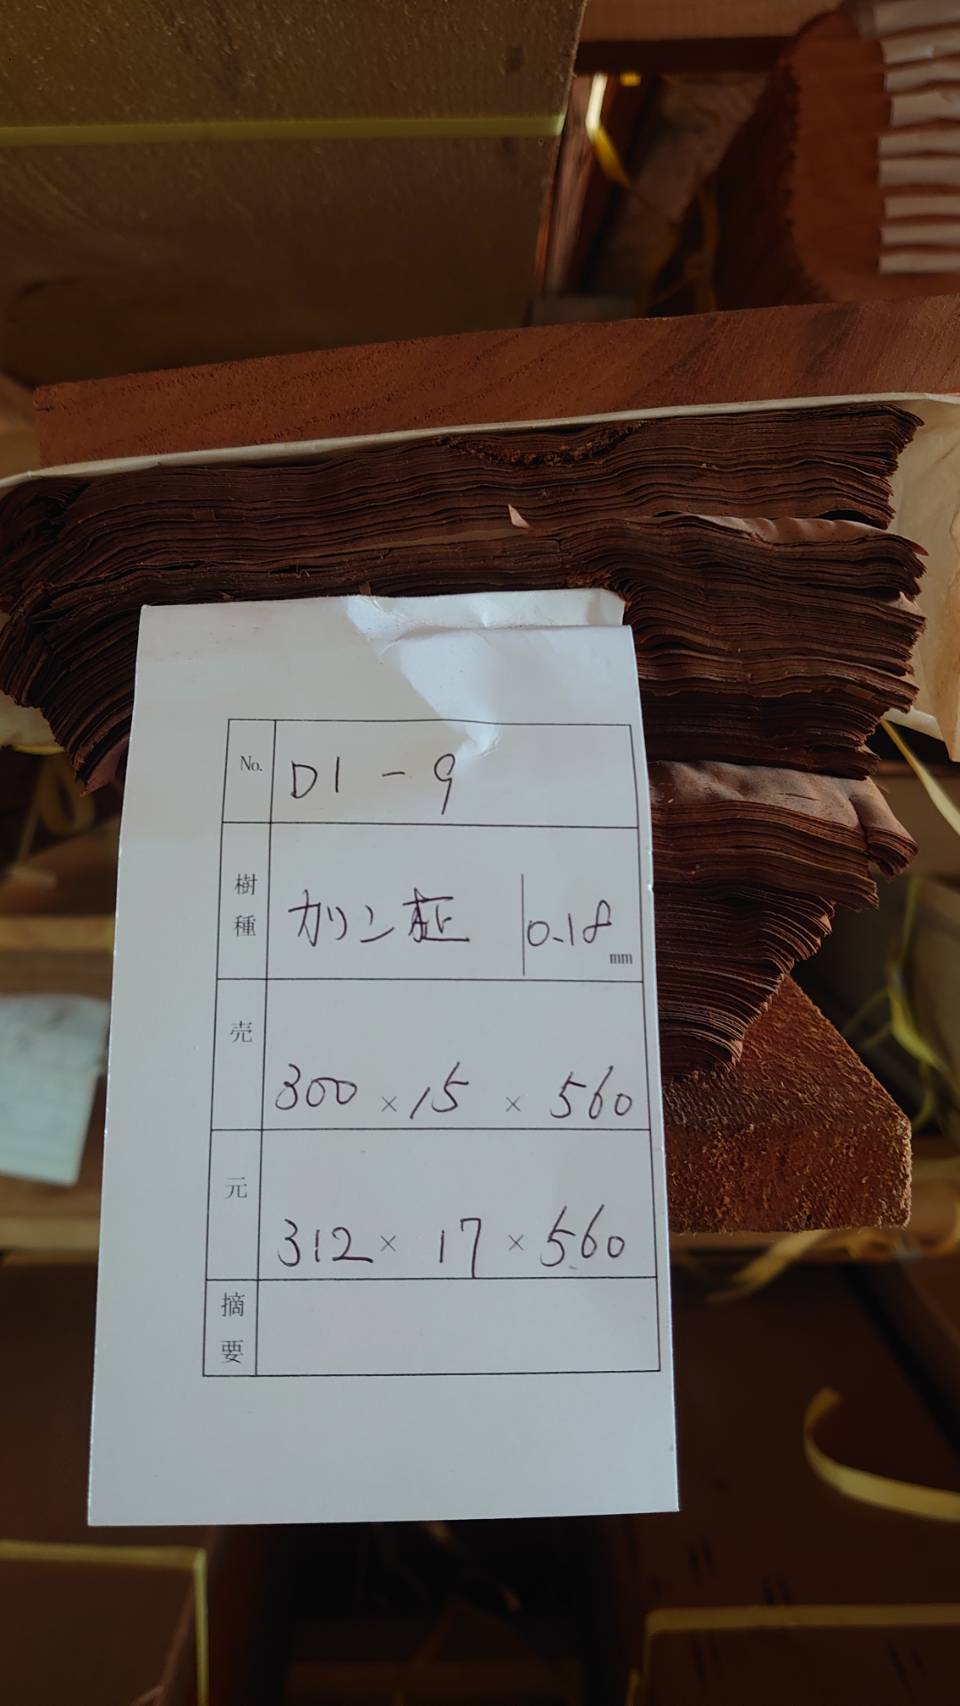 No. D1 - 9
樹種 カリン柾 0.18 mm
売 300 × 15 × 560
元 312 × 17 × 560
摘要